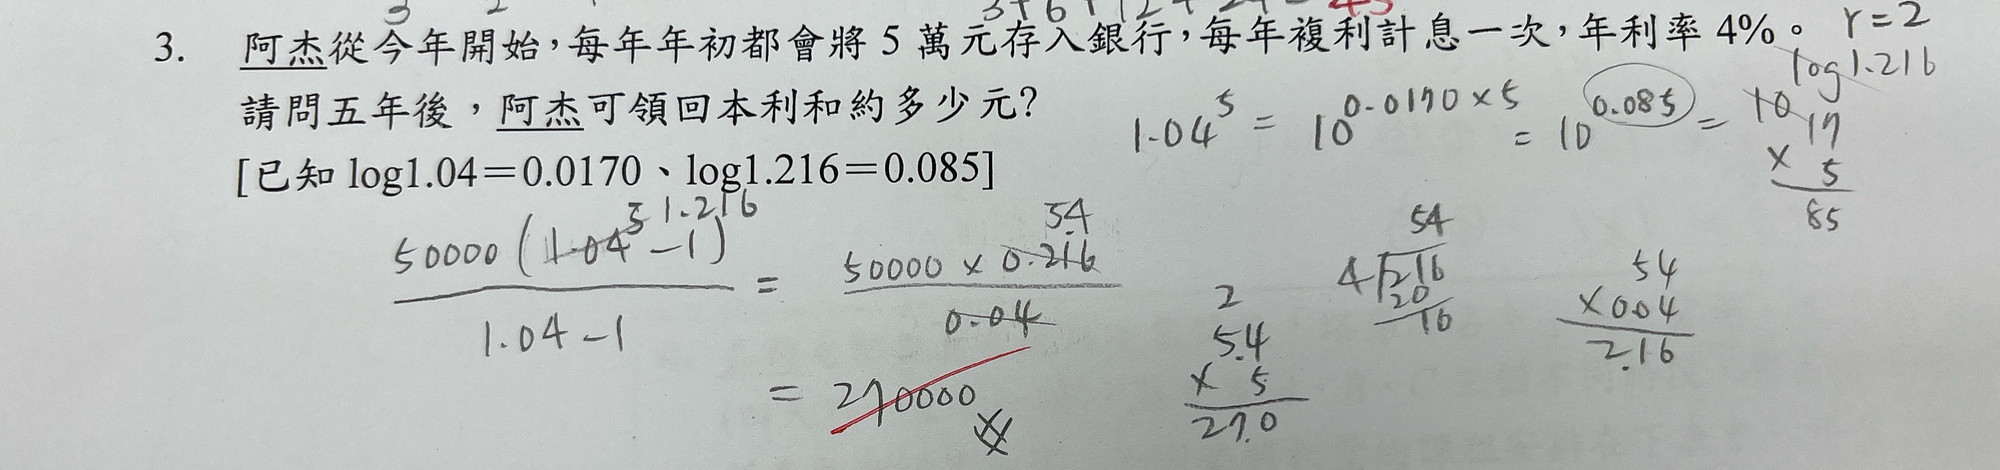 3+6+12+24=45
3. 阿杰從今年開始，每年年初都會將 5 萬元存入銀行，每年複利計息一次，年利率 4%。 r=2
請問五年後，阿杰可領回本利和約多少元？
[已知 log1.04＝0.0170、log1.216＝0.085]
1.04^5 = 10^0.0170×5 = 10^0.085 = 10^log1.216
17
× 5
85
50000 (1.04^5 -1) 1.216
1.04-1
= 50000 × 0.216 5.4
0.04
= 270000
2
5.4
× 5
27.0
54
4 216
20
16
54
×0.04
2.16